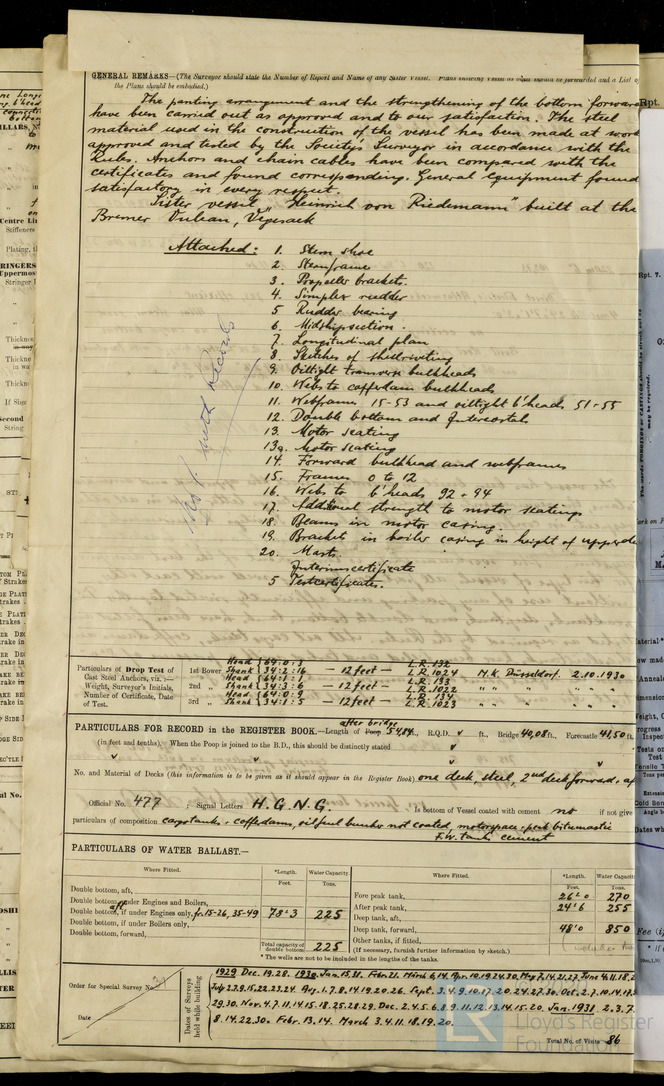 GENERAL REMARKS—(The Surveyor should state the Number of Report and Name of any Sister Vessel.
the Plans should be embodied.)
The panting arrangement and the strengthening of the bottom forward
have been carried out as approved and to our satisfaction. The steel
material used in the construction of the vessel has been made at works
approved and tested by the Society's Surveyor in accordance with the
Rules. Anchors and chain cables have been compared with the
certificates and found corresponding. General equipment found
satisfactory in every respect.
Sister vessel "Heinrich von Riedemann" built at the
Bremer Vulcan, Vegesack
Attached: 1. Stem shoe
2. Sternframe
3. Propeller bracket.
4. Simplex rudder
5 Rudder bearing
6. Midshipsection.
7. Longitudinal plan
8. Sketches of shellriveting
9. Oiltight transverse bulkheads
10. Webs to cofferdam bulkheads
11. Webframes 15-53 and oiltight b'heads 51-55
12. Double bottom and Intercostals
13. Motor seating
13a. Motor seating
14. Forward bulkhead and webframes
15. Frames 0 to 12
16. Webs to b'heads 92 + 94
17. Additional strength to motor seatings
18. Beams in motor casing.
19. Bracket in boiler casing in height of upper
20. Masts.
Interimscertificate
5 Testcertificates.
Kept with Records
Particulars of Drop Test of
Cast Steel Anchors, viz.:—
Weight, Surveyor's Initials,
Number of Certificate, Date
of Test.
1st Bower Head 64:0:3 Shank 34:2:16 — 12 feet — L.R. 132 L.R. 1024 M.K. Düsseldorf. 2.10.1930
2nd " Head 64:1:1 Shank 34:3:6 — 12 feet — L.R. 133 L.R. 1022 " " "
3rd " Head 64:0:9 Shank 34:1:5 — 12 feet — L.R. 134 L.R. 1023 " " "
PARTICULARS FOR RECORD in the REGISTER BOOK.—Length of Poop after bridge 54,84 ft., R.Q.D. ft., Bridge 40,08 ft., Forecastle 41,50 ft.
(in feet and tenths). When the Poop is joined to the B.D., this should be distinctly stated
No. and Material of Decks (this information is to be given as it should appear in the Register Book) one deck, steel, 2nd deck forward,
Official No. 477 ; Signal Letters H.G.N.G. Is bottom of Vessel coated with cement no if not give
particulars of composition cargotanks + cofferdams, oilfuel bunker not coated, motorspace + peak bitumastic
F.W. tanks cement
PARTICULARS OF WATER BALLAST.—
Where Fitted. *Length. Feet. Water Capacity. Tons.
Double bottom, aft,
Double bottom, under Engines and Boilers,
Double bottom, aft, if under Engines only, fr. 15-26, 35-49 78'3 225
Double bottom, if under Boilers only,
Double bottom, forward,
Total capacity of double bottom 225
Where Fitted. *Length. Feet. Water Capacity. Tons.
Fore peak tank, 26'0 270
After peak tank, 24'6 255
Deep tank, aft,
Deep tank, forward, 48'0 850
Other tanks, if fitted,
(If necessary, furnish further information by sketch.)
* The wells are not to be included in the lengths of the tanks.
Order for Special Survey No.
Date
Dates of Surveys held while building
1929 Dec. 19.28. 1930 Jan. 15.31. Febr. 21. March 6.14. Apr. 10.19.24.30. May 7.14.21.27. June 4.11.18.2
July 2.3.9.15.22.23.24. Aug. 1.7.8.14.19.20.26. Sept. 3.4.9.10.17.20.24.27.30. Oct. 2.7.10.14.17.
29.30. Nov. 4.7.11.14.15.18.25.28.29. Dec. 2.4.5.6.8.9.11.12.13.14.15.20. Jan. 1931 2.3.7.
8.14.22.30. Febr. 13.14. March 3.4.11.18.19.20.
Total No. of Visits 86
LR Lloyd's Register
Foundation